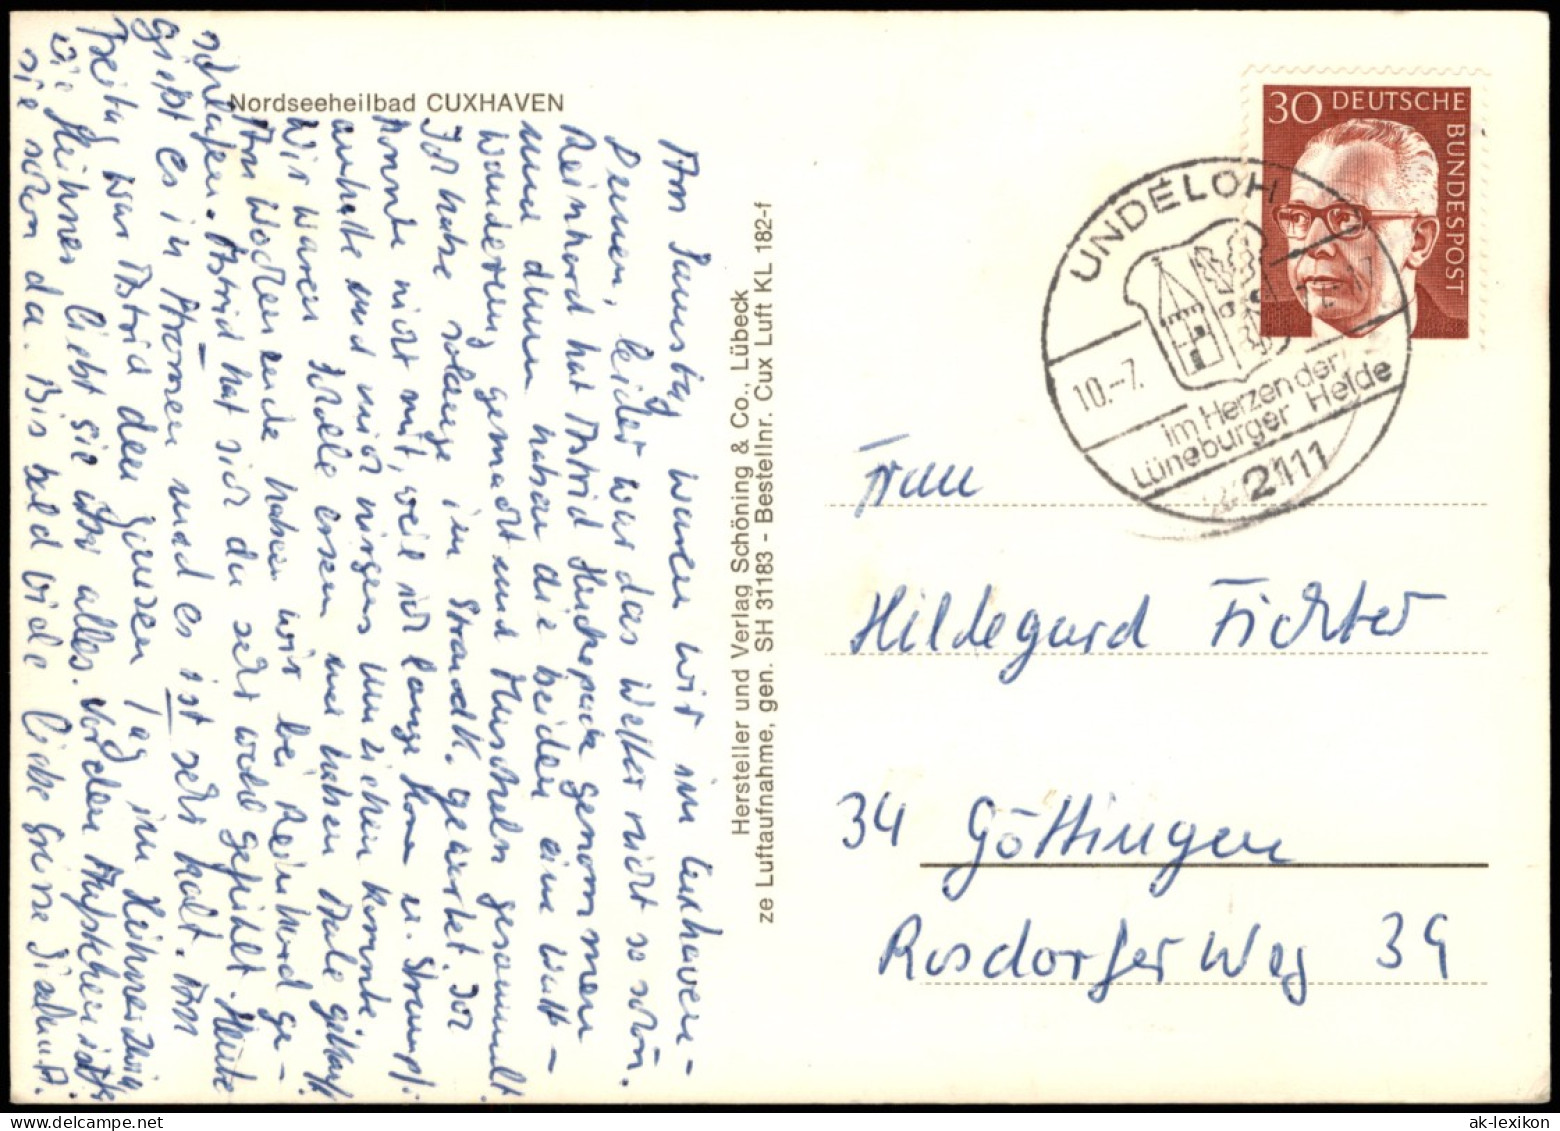 Nordseeheilbad CUXHAVEN
Am Samstag waren wir in Cuxhaven -
Dunen, leider war das Wetter nicht so schön.
Reinhard hat Astrid Huckepack genommen
und dann haben die beiden eine Watt-
wanderung gemacht und Muscheln gesammelt.
Ich habe solange im Strandk. gewartet. Ich
konnte nicht mit, weil ich lange Hose u. Strumpf.
anhatte und mich nirgens umziehen konnte.
Wir waren Scholle essen und haben Aale gekauft.
Am Wochenende haben wir bei Reinhard ge-
schlafen. Astrid hat sich da sehr wohl gefühlt. Heute
gießt es in Strömen und es ist sehr kalt. Am
Freitag war Astrid den ganzen Tag im
die liebt sie über alles. Vor dem Aufstehen ist
sie schon da. Bis bald viele liebe Grüsse
Hersteller und Verlag Schöning & Co., Lübeck
ze Luftaufnahme, gen. SH 31183 - Bestellnr. Cux Luft KL 182-f
30 DEUTSCHE BUNDESPOST
UNDELOH
10.-7.
im Herzen der
Lüneburger Heide
2111
Frau
Hildegard Fichter
34 Göttingen
Rosdorfer Weg 39
ak-lexikon